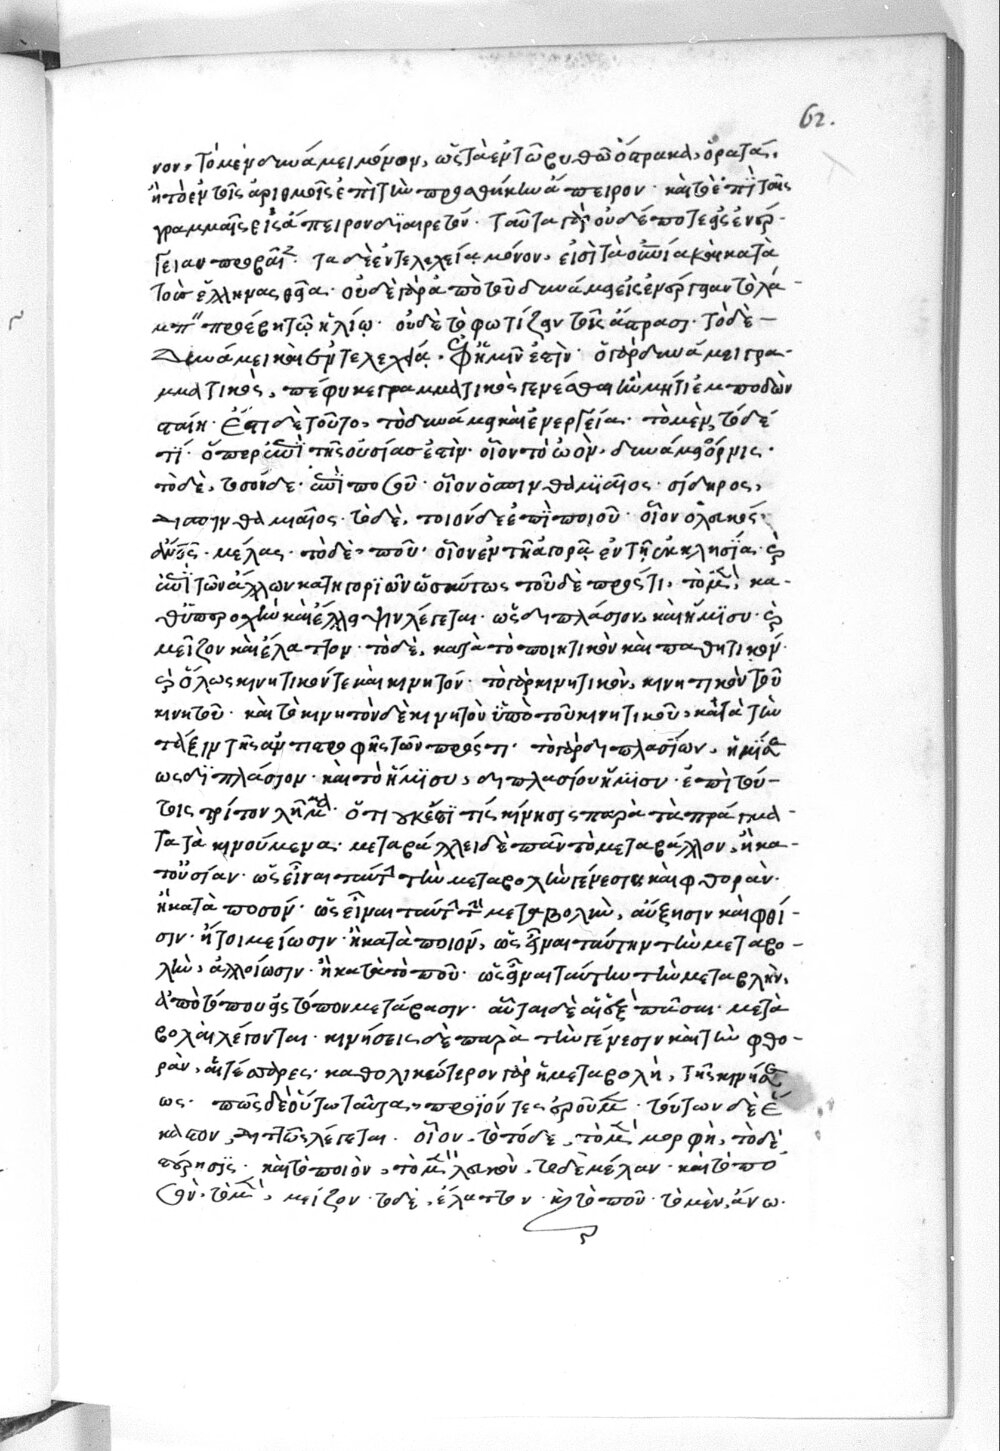 62.
νον, τὸ μὲν δυνάμει μόνον, ὡς τὰ ἐν τῶ βυθῶ ὄστρακα, ὁρατά.
ἢ τὸ ἐν τοῖς ἀριθμοῖς ἐπὶ τὴν προσθήκην ἄπειρον· καὶ τὸ ἐπὶ ταῖς
γραμμαῖς εἰς ἄπειρον διαιρετόν. ταῦτα γὰρ οὐδέποτε εἰς ἐνέρ-
γειαν προβαίνει· τὰ δὲ ἐντελεχεία μόνον, εἰσὶ τὰ οὐράνια καὶ κατὰ
τοὺς ἕλληνας θεῖα. οὐδὲ γὰρ ἀπὸ τοῦ δυνάμει εἰς ἐνέργειαν τὸ λά-
μπειν προσέβη τῶ ἡλίω. οὐδὲ τὸ φωτίζειν τοῖς ἄστρασι. τὸ δὲ
δυνάμει καὶ ἐντελεχεία. ὃ ἡμῖν ἐστὶν. ὁ γὰρ δυνάμει γρα-
μματικὸς, πέφυκε γραμματικὸς γενέσθαι ἂν μή τι ἐμποδὼν
σταίη. ἔστι δὲ τοῦτο, τὸ δυνάμει καὶ ἐνεργεία. τὸ μὲν, τόδε
τί. ὅπερ ἐπὶ τῆς οὐσίας ἐστὶν. οἷον τὸ ὠὸν, δυνάμει ὄρνις.
τὸ δὲ, τοσόνδε· ἐπὶ ποσοῦ. οἷον ὁ σπιθαμιαῖος σίδηρος,
δισπιθαμιαῖος· τὸ δὲ, τοιόνδε ἐπὶ ποιοῦ. οἷον ὁ λευκός
μέλας. τὸ δὲ, ποῦ. οἷον ἐν τῆ ἀγορᾶ ἐν τῆ ἐκκλησία. καὶ
ἐπὶ τῶν ἄλλων κατηγοριῶν ὡσαύτως τοῦ δὲ πρός τι, τὸ μὲν, κα-
θ' ὑπεροχὴν καὶ ἔλλειψιν λέγεται. ὡς διπλάσιον, καὶ ἥμισυ. καὶ
μεῖζον καὶ ἔλαττον. τὸ δὲ, κατὰ τὸ ποιητικὸν καὶ παθητικόν.
καὶ ὅλως κινητικόν τε καὶ κινητόν. τὸ γὰρ κινητικὸν, κινητικὸν τοῦ
κινητοῦ. καὶ τὸ κινητὸν δὲ κινητὸν ὑπὸ τοῦ κινητικοῦ, κατὰ τὴν
τάξιν τῆς ἀντιστροφῆς τῶν πρός τι. τὸ γὰρ διπλάσιον, ἡμίσε-
ως διπλάσιον· καὶ τὸ ἥμισυ, διπλασίου ἥμισυ. ἐπὶ τού-
τοις τρίτον λῆμμα. ὅτι οὐκ ἔστι τίς κίνησις παρὰ τὰ πράγμα-
τα τὰ κινούμενα. μεταβάλλει δὲ πᾶν τὸ μεταβάλλον, ἢ κα-
τ' οὐσίαν. ὡς εἶναι ταύτην τὴν μεταβολὴν γένεσιν καὶ φθοράν.
ἢ κατὰ ποσόν. ὡς εἶναι ταύτην τὴν μεταβολὴν, αὔξησιν καὶ φθί-
σιν. ἤτοι μείωσιν. ἢ κατὰ ποιόν, ὡς εἶναι ταύτην τὴν μεταβο-
λὴν, ἀλλοίωσιν. ἢ κατὰ τὸ ποῦ. ὡς εἶναι ταύτην τὴν μεταβλὴν,
ἀπὸ τόπου εἰς τόπον μετάβασιν. αὗται δὲ αἱ ἓξ πᾶσαι, μετα
βολαὶ λέγονται. κινήσεις δὲ παρὰ τὴν γένεσιν καὶ τὴν φθο-
ρὰν, αἱ τέσσαρες. καθολικώτερον γὰρ ἡ μεταβολὴ, τῆς κινήσε-
ως. πῶς δὲ οὕτω ταῦτα, προϊόντες ἐροῦμεν. τούτων δὲ ἕ-
καστον, διττῶς λέγεται. οἷον. τὸ τόδε, τὸ μὲν μορφὴ, τὸ δὲ
στέρησις. καὶ τὸ ποιὸν, τὸ μὲν λευκὸν, τὸ δὲ μέλαν. καὶ τὸ πο
σὸν. τὸ μὲν, μεῖζον. τὸ δὲ, ἔλαττον. καὶ τὸ ποῦ. τὸ μὲν, ἄνω.